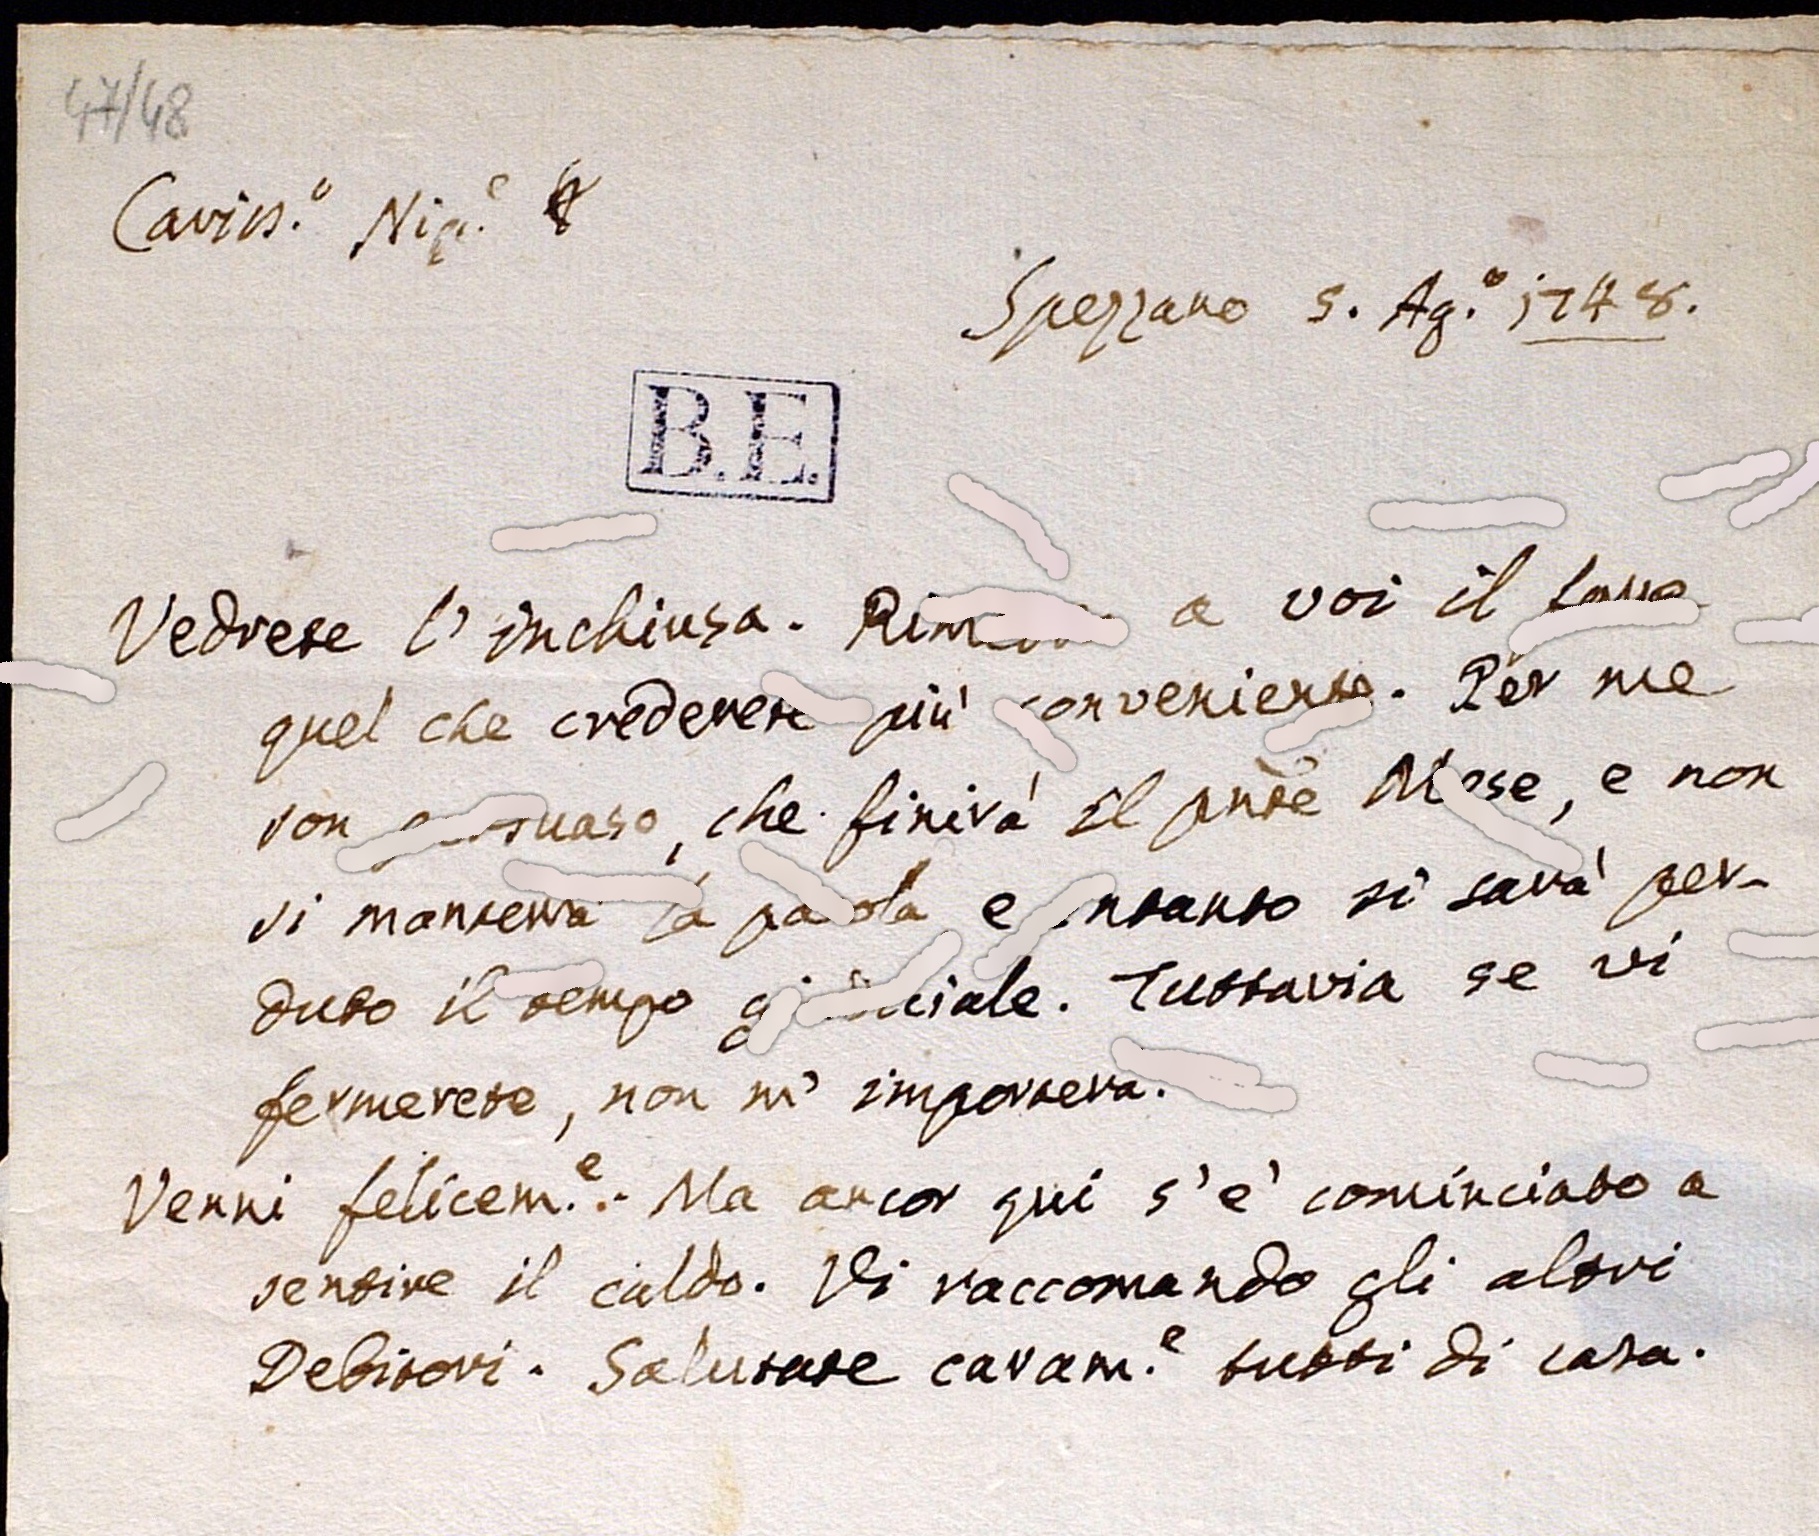 47/48
Cariss.º Nip.e
Spezzano 5. Ag.º 1748.
B.E.
Vedrete l' inchiusa. a voi il fare
quel che crederete più conveniente. Per me
son persuaso, che finirà il pnte Mese, e non
vi manterrà la parola e intanto si sarà per-
duto il tempo giudiciale. Tuttavia se vi
fermerete, non m' importerà.
Venni felicem.e. Ma ancor qui s' e' cominciato a
sentire il caldo. Vi raccomando gli altri
Debitori. Salutate caram.e tutti di casa.